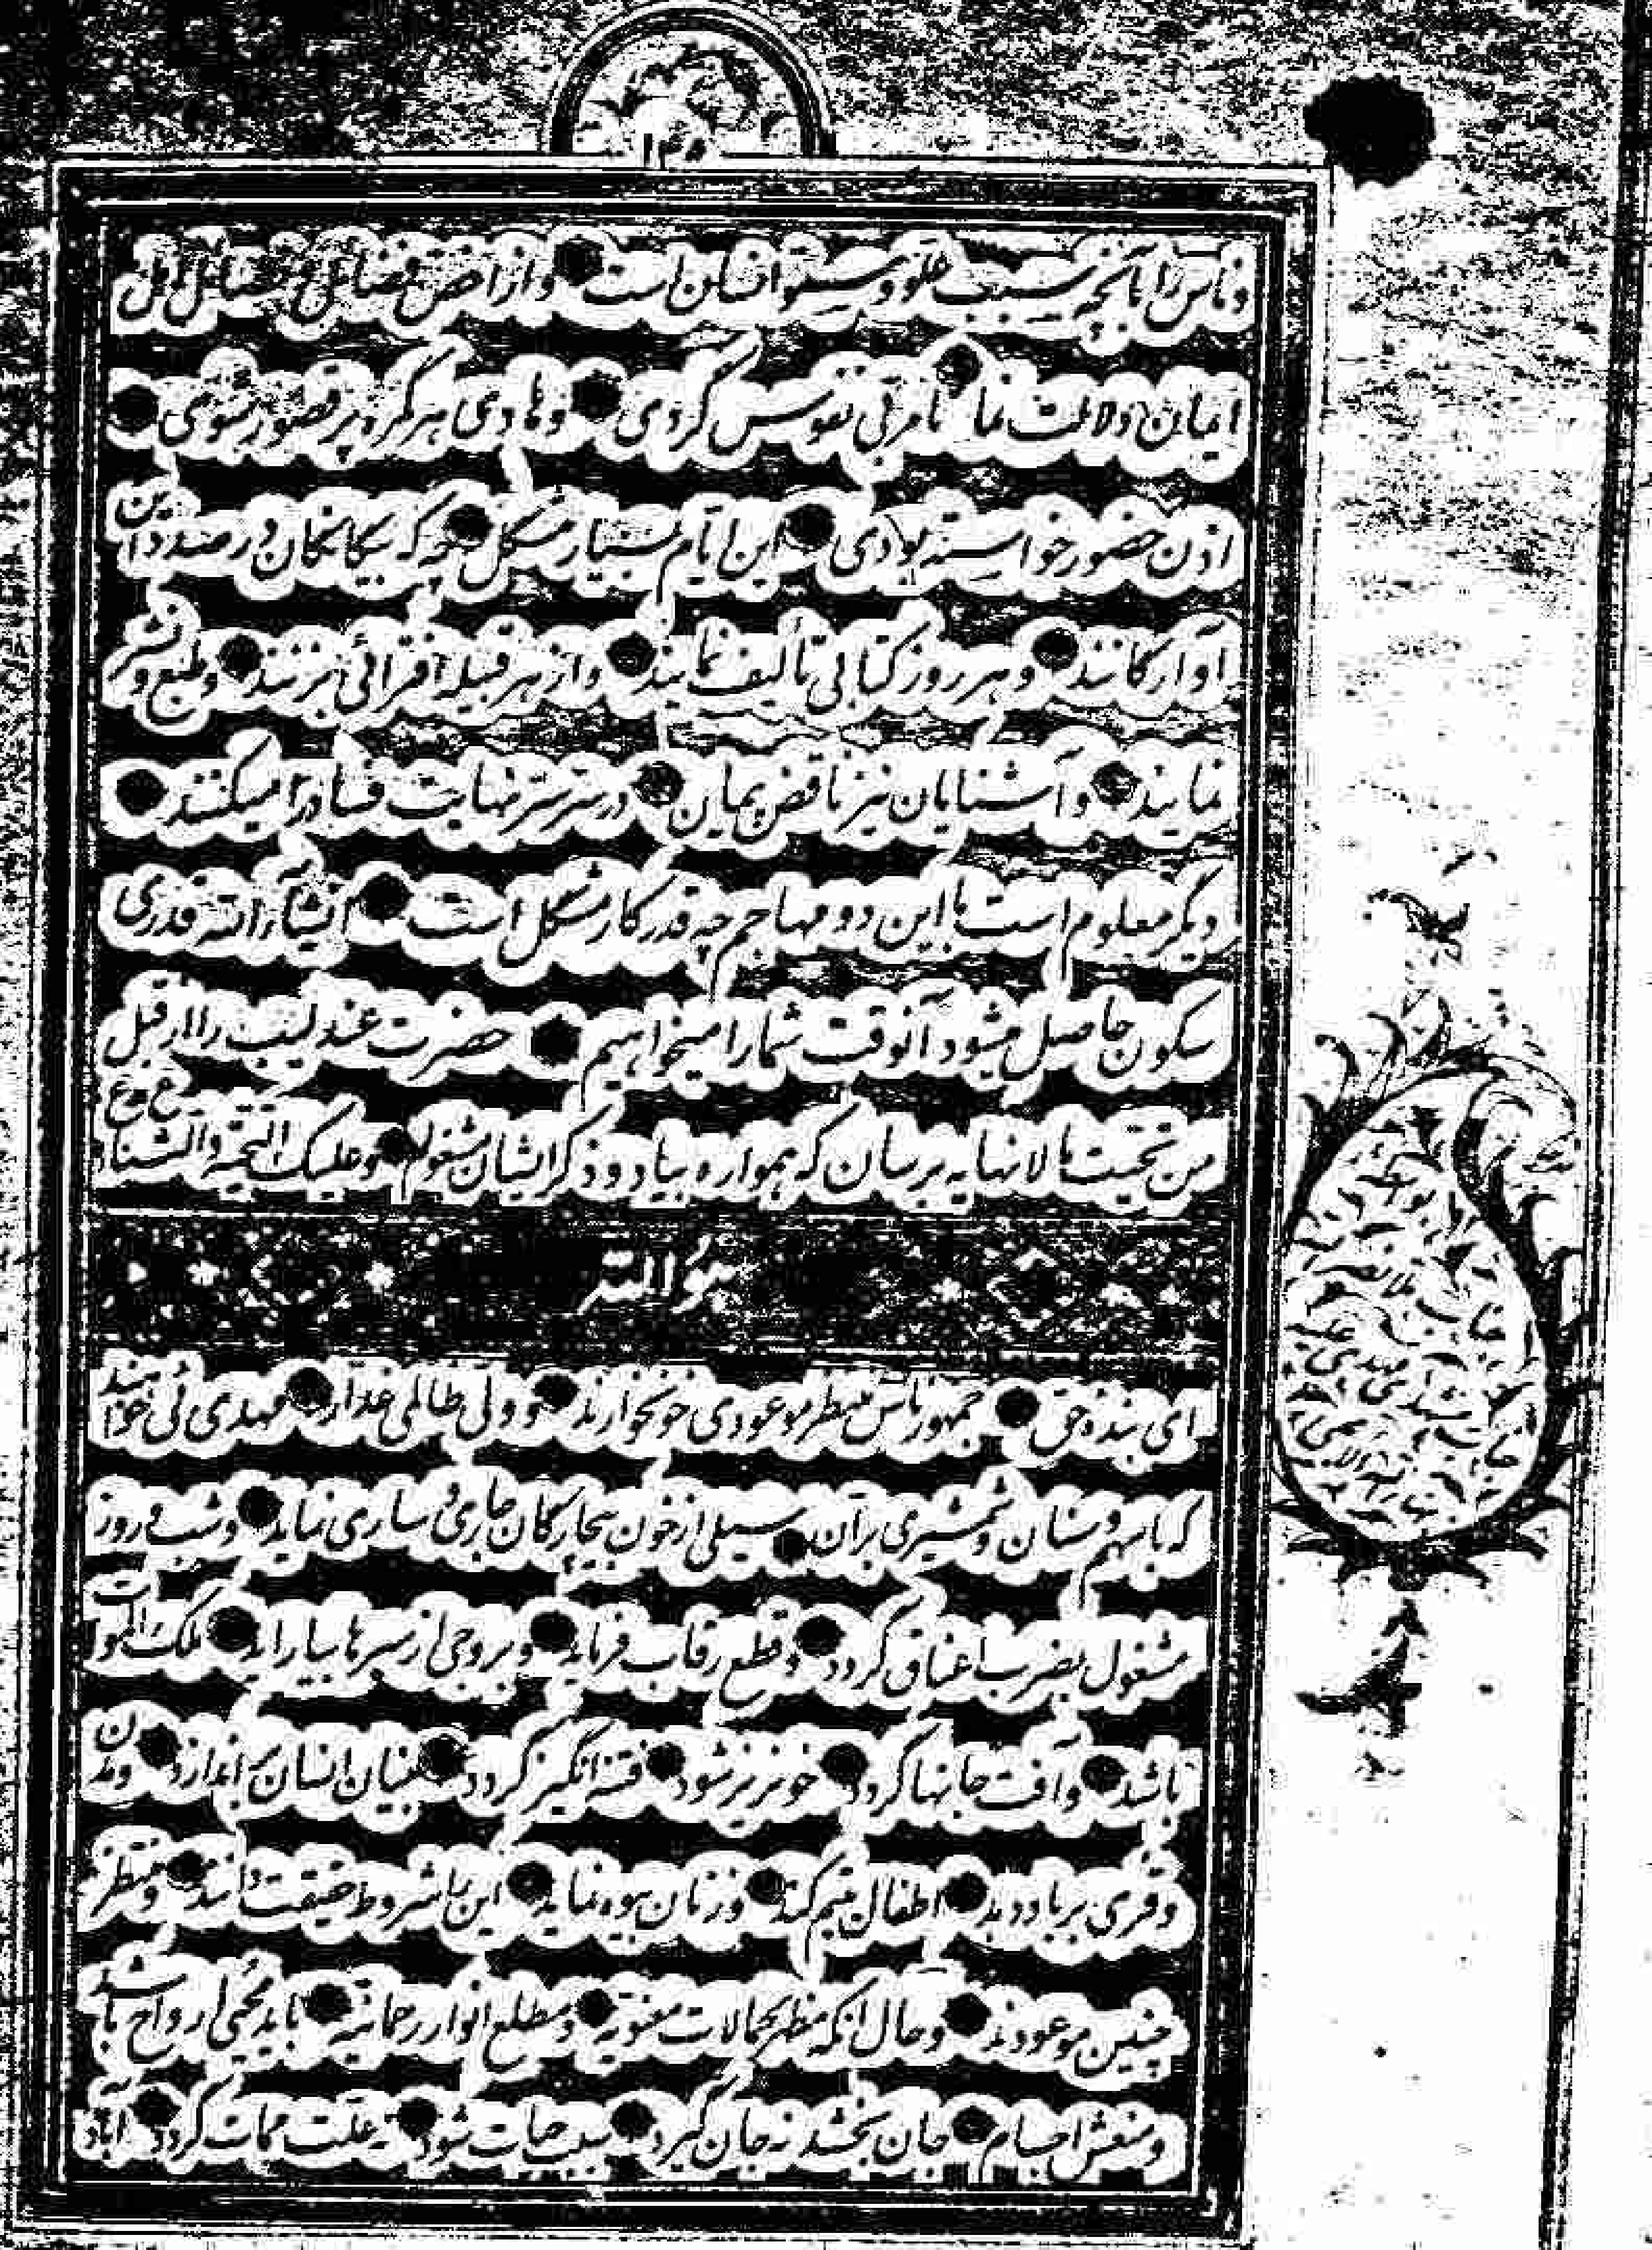 ۱۳۸
و ناس را بآنچه سبب علوّ و سموّ انسان است و از اخصّ فضائل و خصائل اهل
ایمان دلالت نما تا مربّی نفوس گردی و هادی هر گمره پر قصور شوی
اذن حضور خواسته بودی این ایّام بسیار مشکل چه که بیگانگان در صدد این
آوارگانند و هر روز کتابی تألیف نمایند و از هر قبیله افترائی بزنند و طبع و نشر
نمایند و آشنایان نیز ناقض پیمان در سرّ سرّ نهایت فساد را میکنند
دیگر معلوم است با این دو مهاجم چه قدر کار مشکل است انشآءالله قدری
سکون حاصل میشود آنوقت شما را میخواهیم حضرت عندلیب را از قبل
من تحیّتها لانهایه برسان که همواره بیاد و ذکر ایشان مشغولم و علیک التّحیّة و الثّناء
ع ع
هو الله
ای بنده حق جمهور ناس منتظر موعودی خونخوارند و ولیّ ظالمی غدّار مهدی ئی خواهند
که با سهم و سنان و شمشیری برّان سیلی از خون بیچارگان جاری و ساری نماید و شب و روز
مشغول بضرب اعناق گردد و قطع رقاب فرماید و بروجی از سرها بیاراید ملک الموت
باشد و آفت جانها گردد خونریز شود فتنه انگیز گردد بنیان انسان براندازد و مدن
و قری بر باد دهد اطفال یتیم کند و زنان بیوه نماید این را شروط حقیقت دانند و منتظر
چنین موعودند و حال آنکه مظهر کمالات معنویّه و مطلع انوار رحمانیّه باید محیی ارواح باشد
و منعش اجسام جان بخشد نه جان گیرد سبب حیات شود نه علّت ممات گردد آباد
جناب ملا نصرالله
جناب مهدی علیه